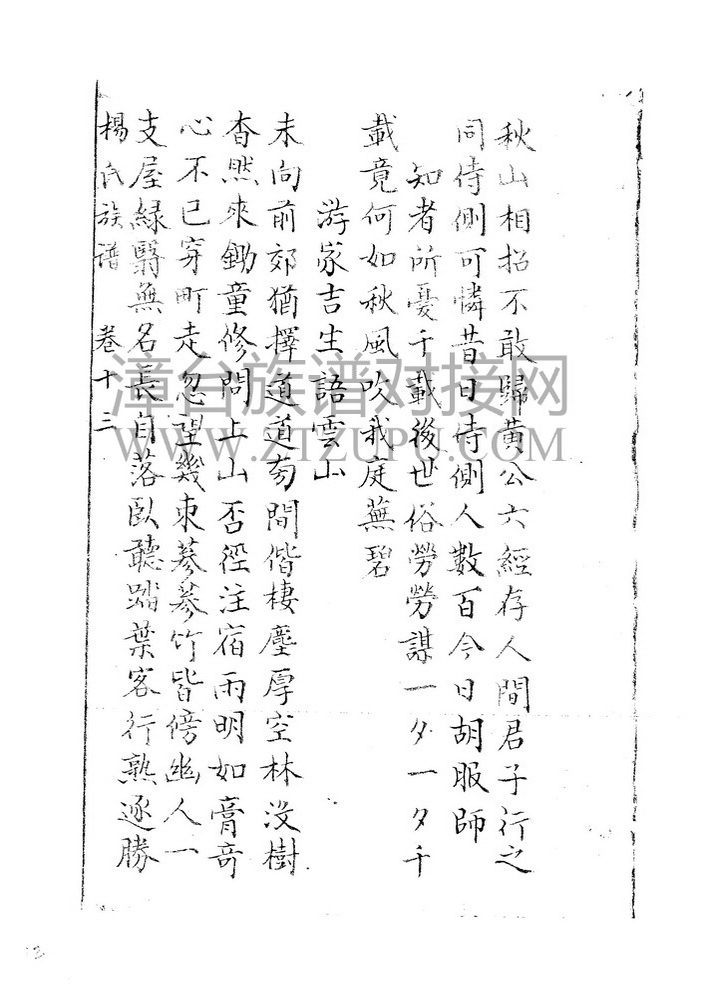 秋山相招不敢歸黃公六經存人間君子行之
同侍側可憐昔日侍側人數百今日胡服師
知者所憂千載後世俗勞勞謀一夕一夕千
載竟何如秋風吹我庭蕪碧
游家吉生語雲山
未向前郊猶擇道道旁間偕棲塵厚空林沒樹
杳然來鋤童修問上山否徑注宿雨明如膏奇
心不已穿町走忽望幾東蔘蔘竹皆傍幽人一
支屋緑翳無名長自落臥聽踏葉客行熟逐勝
楊氏族谱 卷十三
漳台族谱对接网
WWW.ZTZUPU.COM